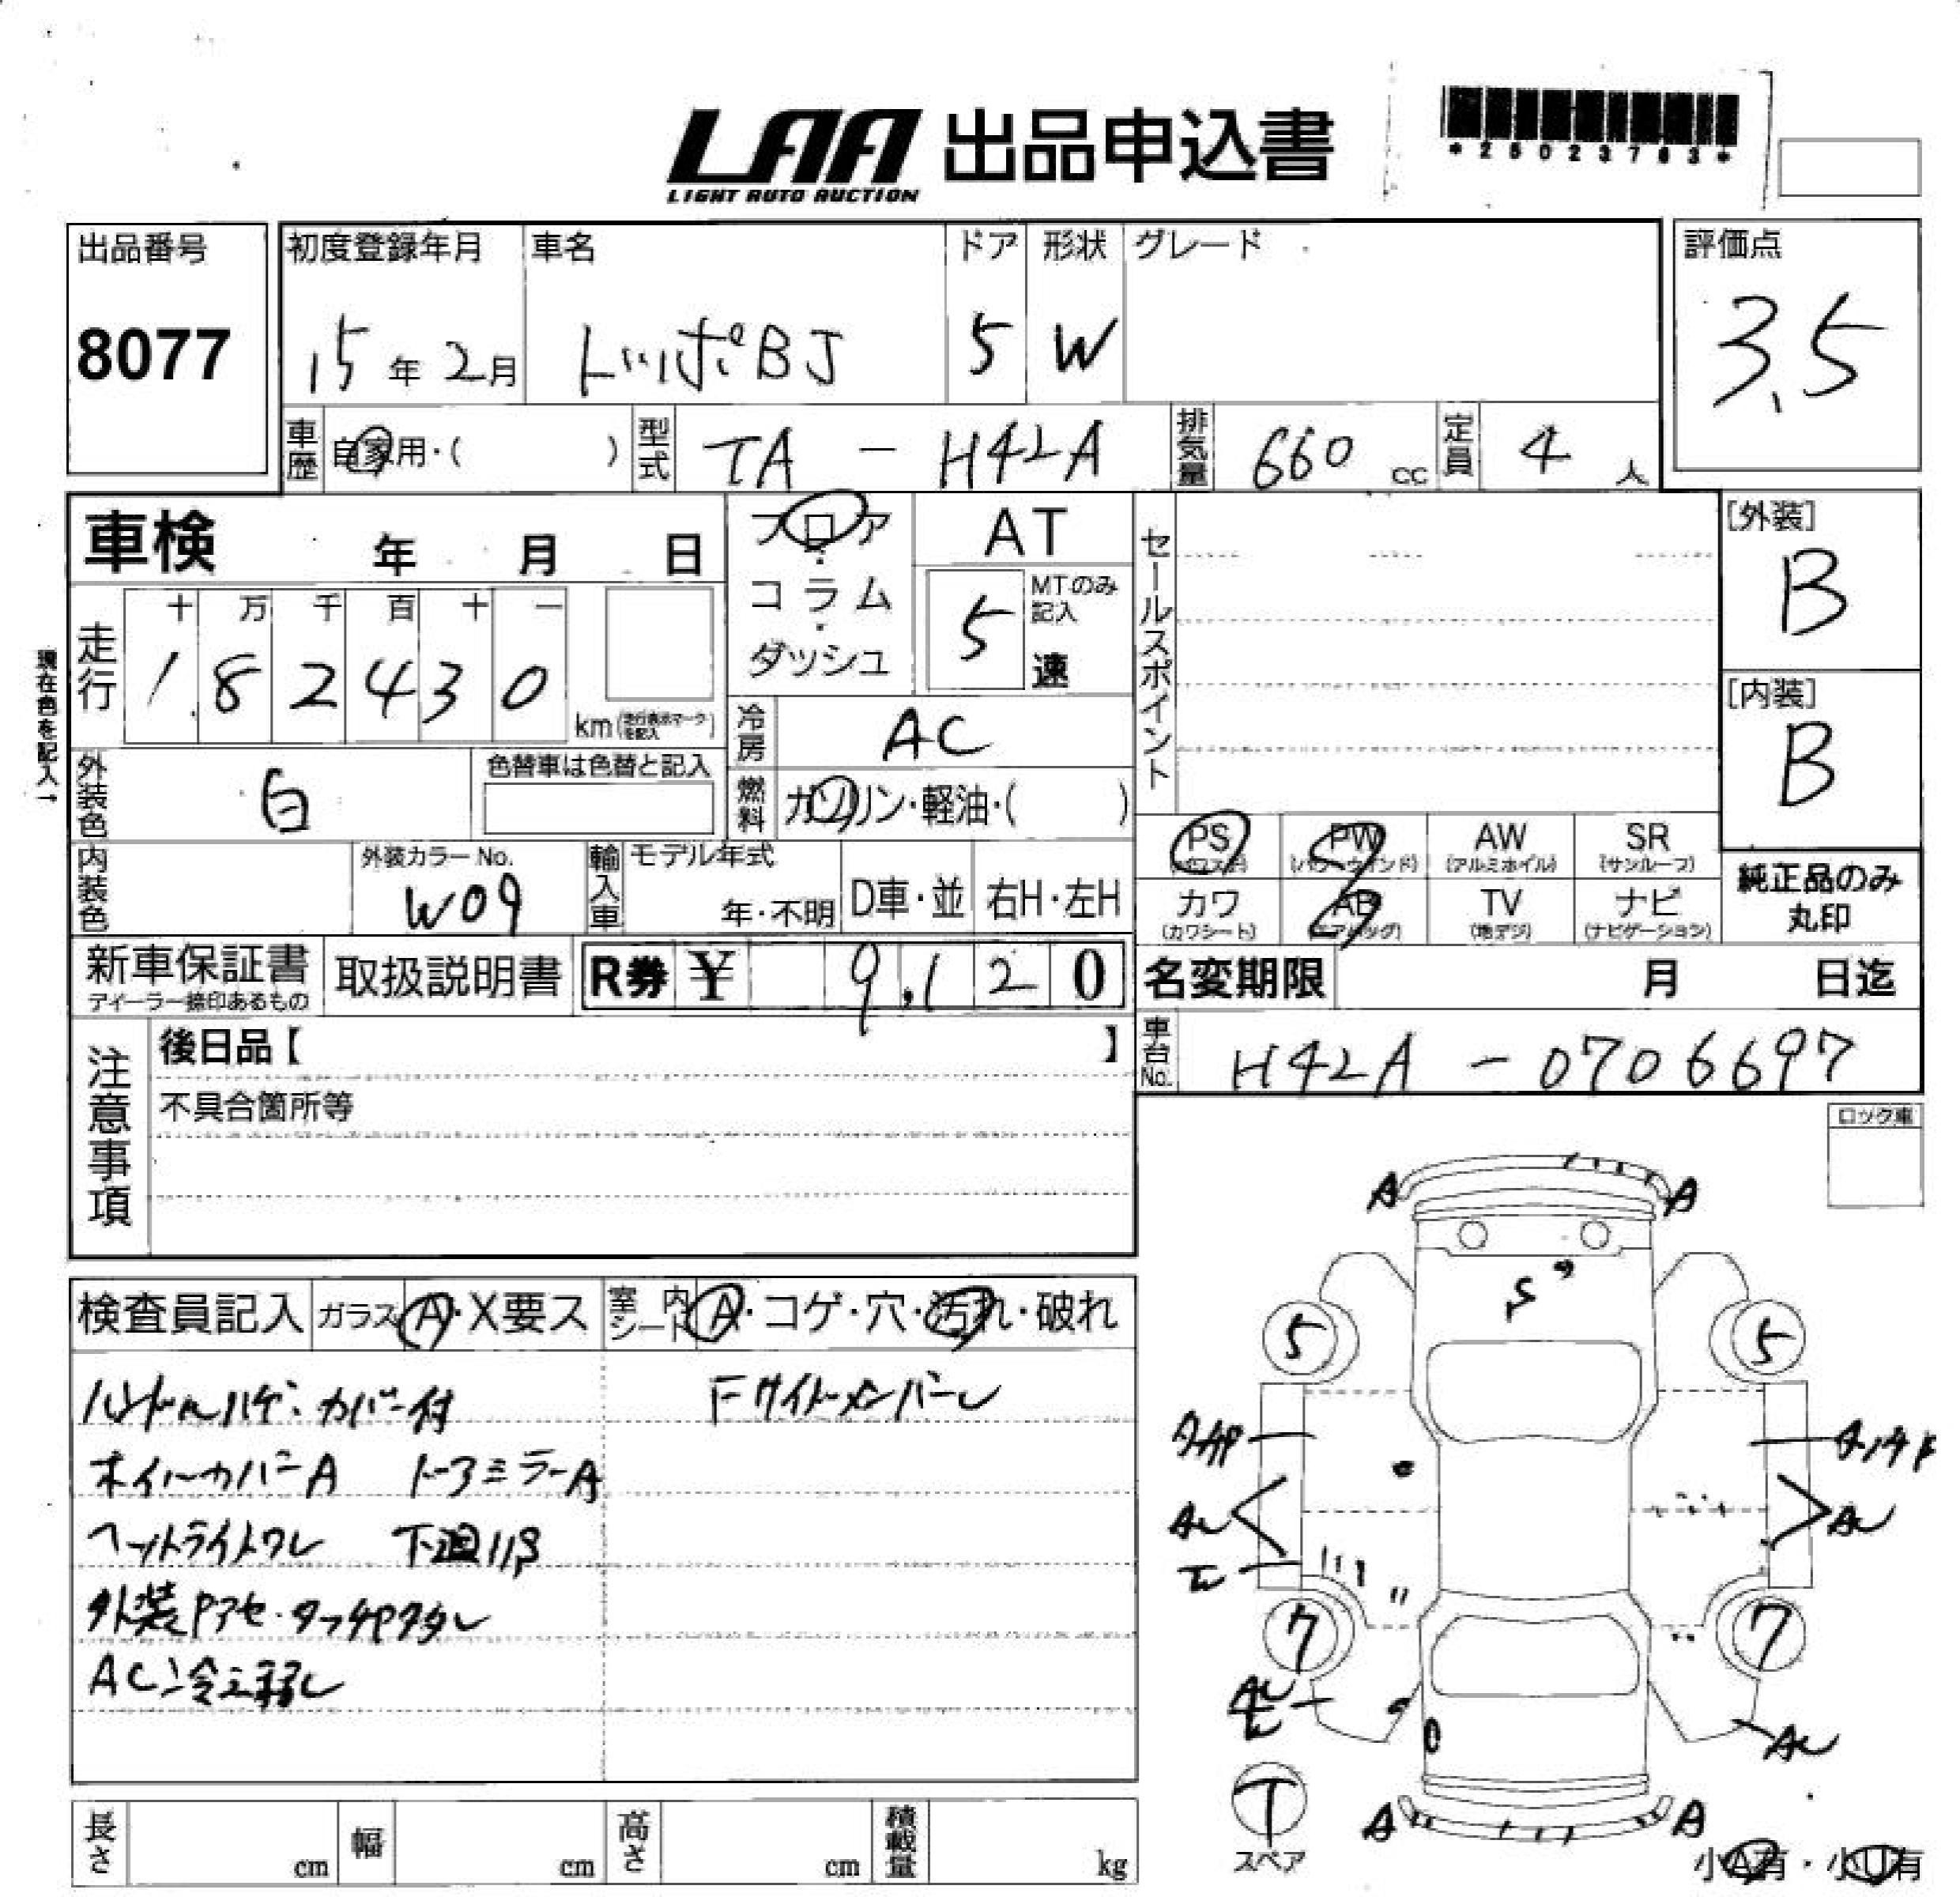 LAA 出品申込書
LIGHT AUTO AUCTION
*25023763*
出品番号
8077
初度登録年月
15年 2月
車名
トッポBJ
ドア
5
形状
W
グレード
評価点
3.5
車歴 自家用・( )
型式 TA - H42A
排気量 660 cc
定員 4 人
車検 年 月 日
フロア・コラム・ダッシュ
AT
5 MTのみ記入 速
セールスポイント
[外装]
B
[内装]
B
走行
十 万 千 百 十 一
1 8 2 4 3 0 km (走行表示マークを記入)
現在色を記入→
冷房 AC
外装色 白
色替車は色替と記入
燃料 ガソリン・軽油・( )
PS (パワステ) PW (パワーウインド) AW (アルミホイル) SR (サンルーフ)
カワ (カワシート) AB (エアバッグ) TV (地デジ) ナビ (ナビゲーション)
純正品のみ丸印
内装色
外装カラーNo.
W09
輸入車
モデル年式
年・不明
D車・並
右H・左H
新車保証書
ディーラー捺印あるもの
取扱説明書
R券 ¥ 9,120
名変期限 月 日迄
注意事項
後日品【 】
不具合箇所等
車台No. H42A - 0706697
ロック車
検査員記入
ガラス A・X要ス
室内シート A・コゲ・穴・汚れ・破れ
ハンドルハゲ・カバー付
Fサイドメンバーし
ホイールカバーA ドアミラーA
ヘットライトワレ 下廻りS
外装Pアセ・タッチP多し
AC冷え弱し
A A
S
5 5
タッチP
AU AU
7 7
AU
T
スペア
A A
小A有・小U有
長さ cm
幅 cm
高さ cm
積載量 kg